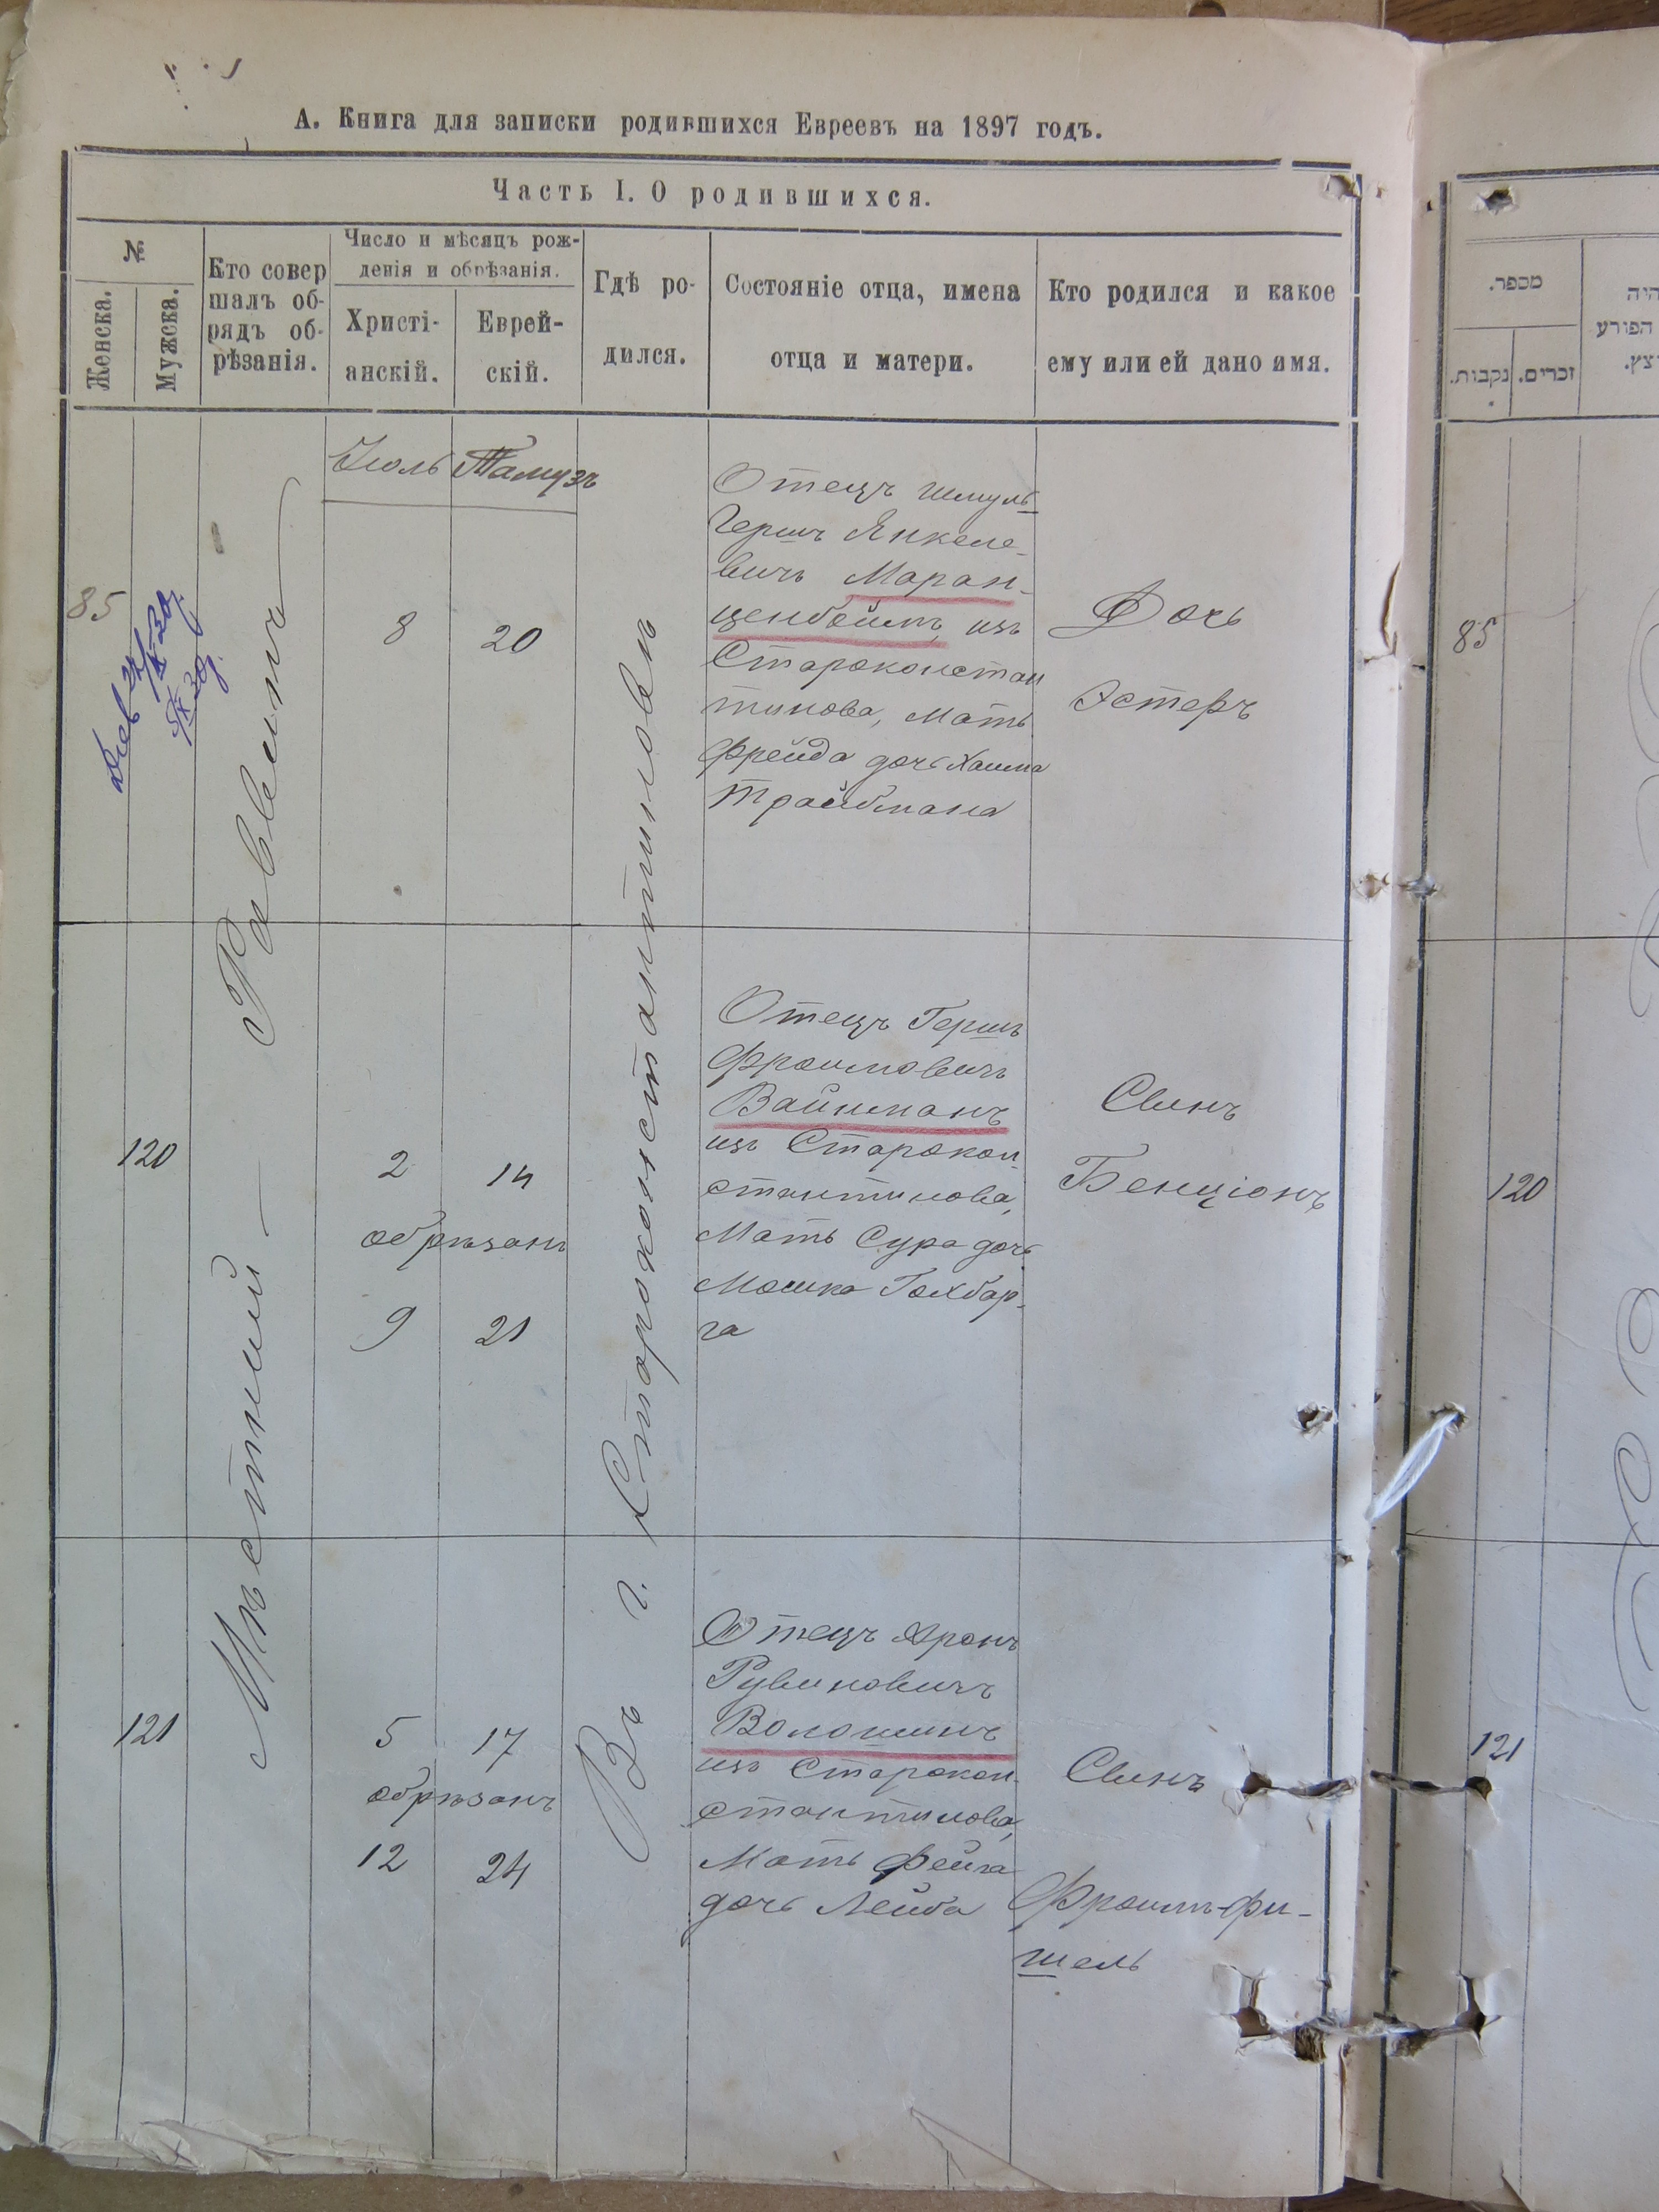 А. Книга для записки родившихся Евреевъ на 1897 годъ.
Часть I. О родившихся.
№
Женска.
Мужска.
Кто совер
шалъ об-
рядъ об-
рѣзанія.
Число и мѣсяцъ рож-
денія и обрѣзанія.
Христі-
анскій.
Еврей-
скій.
Гдѣ ро-
дился.
Состояніе отца, имена
отца и матери.
Кто родился и какое
ему или ей дано имя.
Мѣстный — Раввинъ
Въ г. Староконстантиновѣ
Іюль Тамузъ
85
8 20
Отецъ Шмуль
Гершъ Янкеле-
вичъ Маран-
ценбоймъ, изъ
Староконстан
тинова, Мать
Фрейда дочь Хаима
Трайбмана
Дочь
Эстеръ
120
2 14
обрѣзанъ
9 21
Отецъ Гершъ
Фроимовичъ
Вайнманъ
изъ Старокон-
стантинова,
Мать Сура дочь
Мошка Гохбар-
га
Сынъ
Бенціонъ
121
5 17
обрѣзанъ
12 24
Отецъ Аронъ
Рувиновичъ
Волошинъ
изъ Старокон-
стантинова,
Мать Фейга
дочь Лейба
Сынъ
Фроимъ-Фи-
шель
מספר.
זכרים.
נקבות.
היה
הפורע
85
120
121